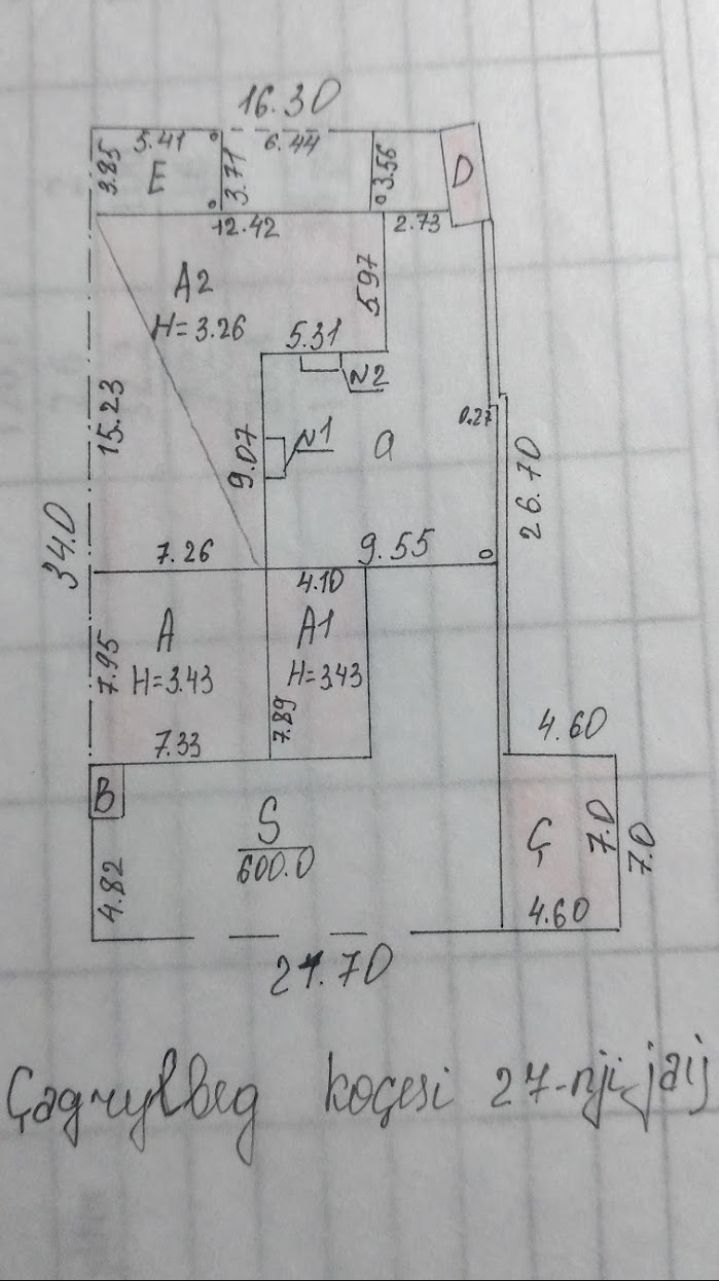 16.30
5.41
6.44
3.85
E
3.71
3.56
D
12.42
2.73
A2
H=3.26
5.97
5.31
N2
15.23
9.07
N1
a
0.27
26.70
34.0
7.26
9.55
4.10
A
H=3.43
A1
H=3.43
7.95
7.89
7.33
4.60
B
S
600.0
Ç
7.0
7.0
4.82
4.60
21.70
Çagrylbeg köçesi 27-nji jaý